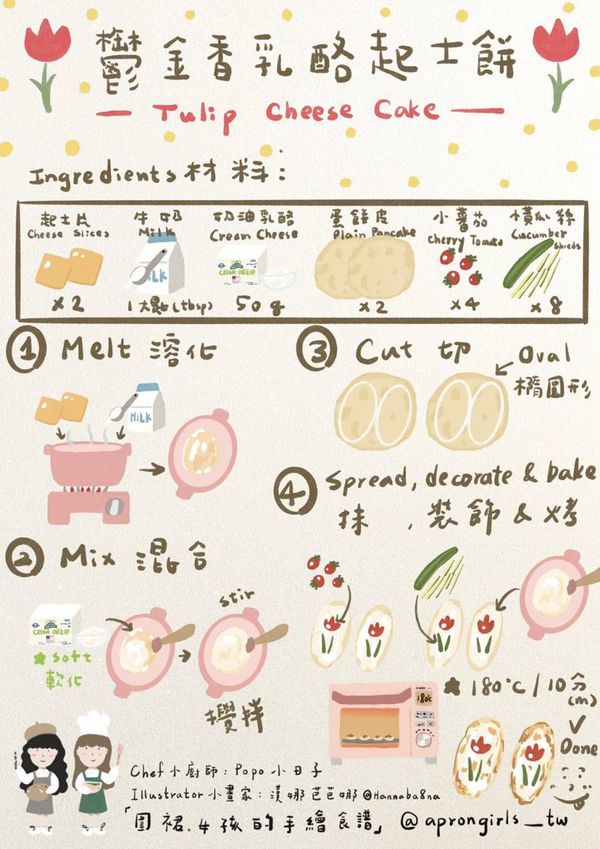 鬱金香乳酪起士餅
Tulip Cheese Cake
Ingredients 材料:
起士片 牛奶 奶油乳酪 蛋餅皮 小蕃茄 小黃瓜絲
Cheese Slices Milk Cream Cheese Plain Pancake Cherry Tomato Cucumber Shreds
MILK CREAM CHEESE
x2 1大匙(tbsp) 50g x2 x4 x8
① Melt 溶化
MILK
② Mix 混合
CREAM CHEESE
★ soft
軟化
stir
攪拌
③ Cut 切
Oval
橢圓形
④ Spread, decorate & bake
抹、裝飾&烤
180°C
★ 180°C/10分
(m)
✓
Done
Chef 小廚師:Popo 小日子
Illustrator 小畫家:漢娜芭芭娜 @Hannaba8na
「圍裙女孩的手繪食譜」 @aprongirls_tw